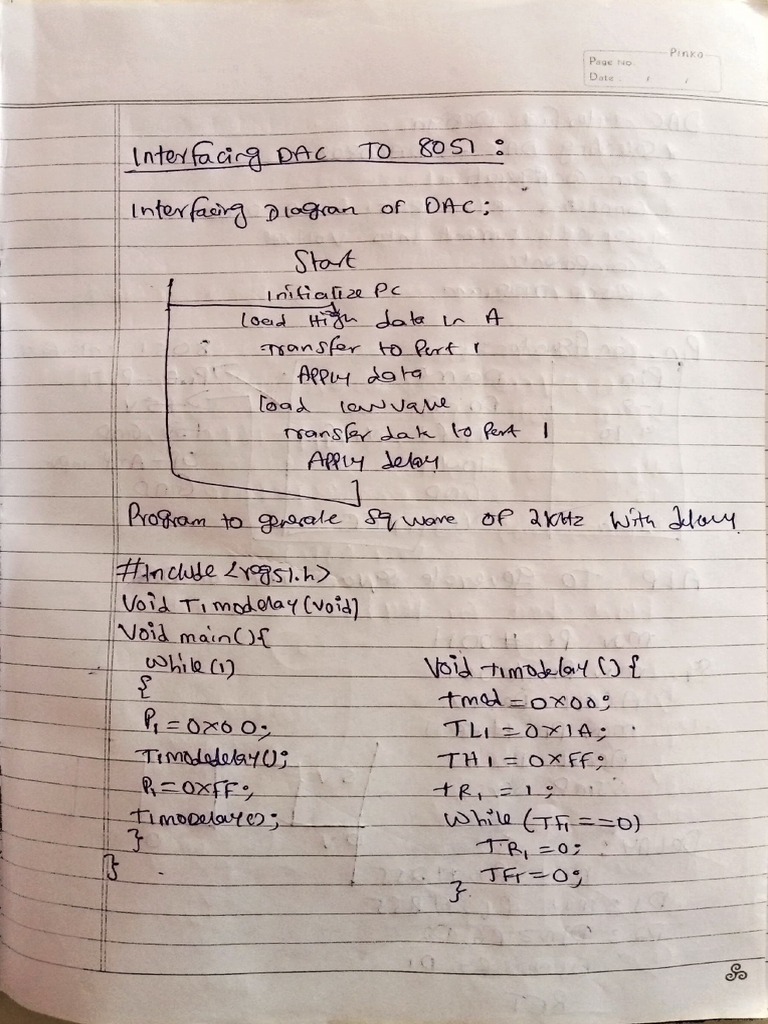 Pinko
Page No.
Date . / /
Interfacing DAC TO 8051 :
Interfacing Diagram of DAC;
Start
initialize Pc
load High data in A
Transfer to Port 1
Apply data
load low value
Transfer data to Port 1
Apply delay
Program to generate sq wave of 2kHz with delay
#include <reg51.h>
Void T1modelay(void)
Void main(){
while(1)
{
P1 = 0x00;
T1modedelay();
P1 = 0xFF;
T1modelay();
}
}
Void t1modelay () {
tmod = 0x00;
TL1 = 0x1A;
TH1 = 0xFF;
tR1 = 1;
while (TF1 == 0)
TR1 = 0;
TF1 = 0;
}